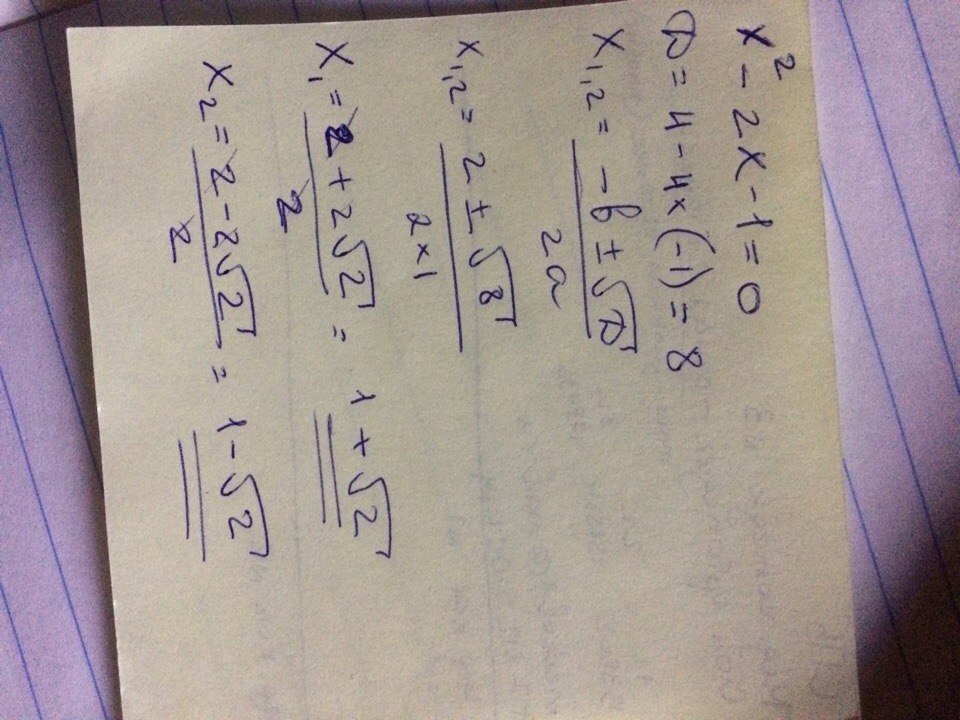 x² - 2x - 1 = 0
D = 4 - 4×(-1) = 8
x₁,₂ = -b ± √D / 2a
x₁,₂ = 2 ± √8 / 2×1
x₁ = 2 + 2√2 / 2 = 1 + √2
x₂ = 2 - 2√2 / 2 = 1 - √2